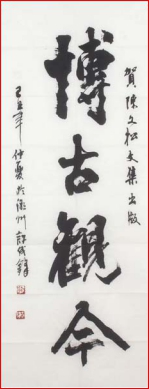 賀陳文松文集出版
博古觀今
己丑年仲夏於漳州